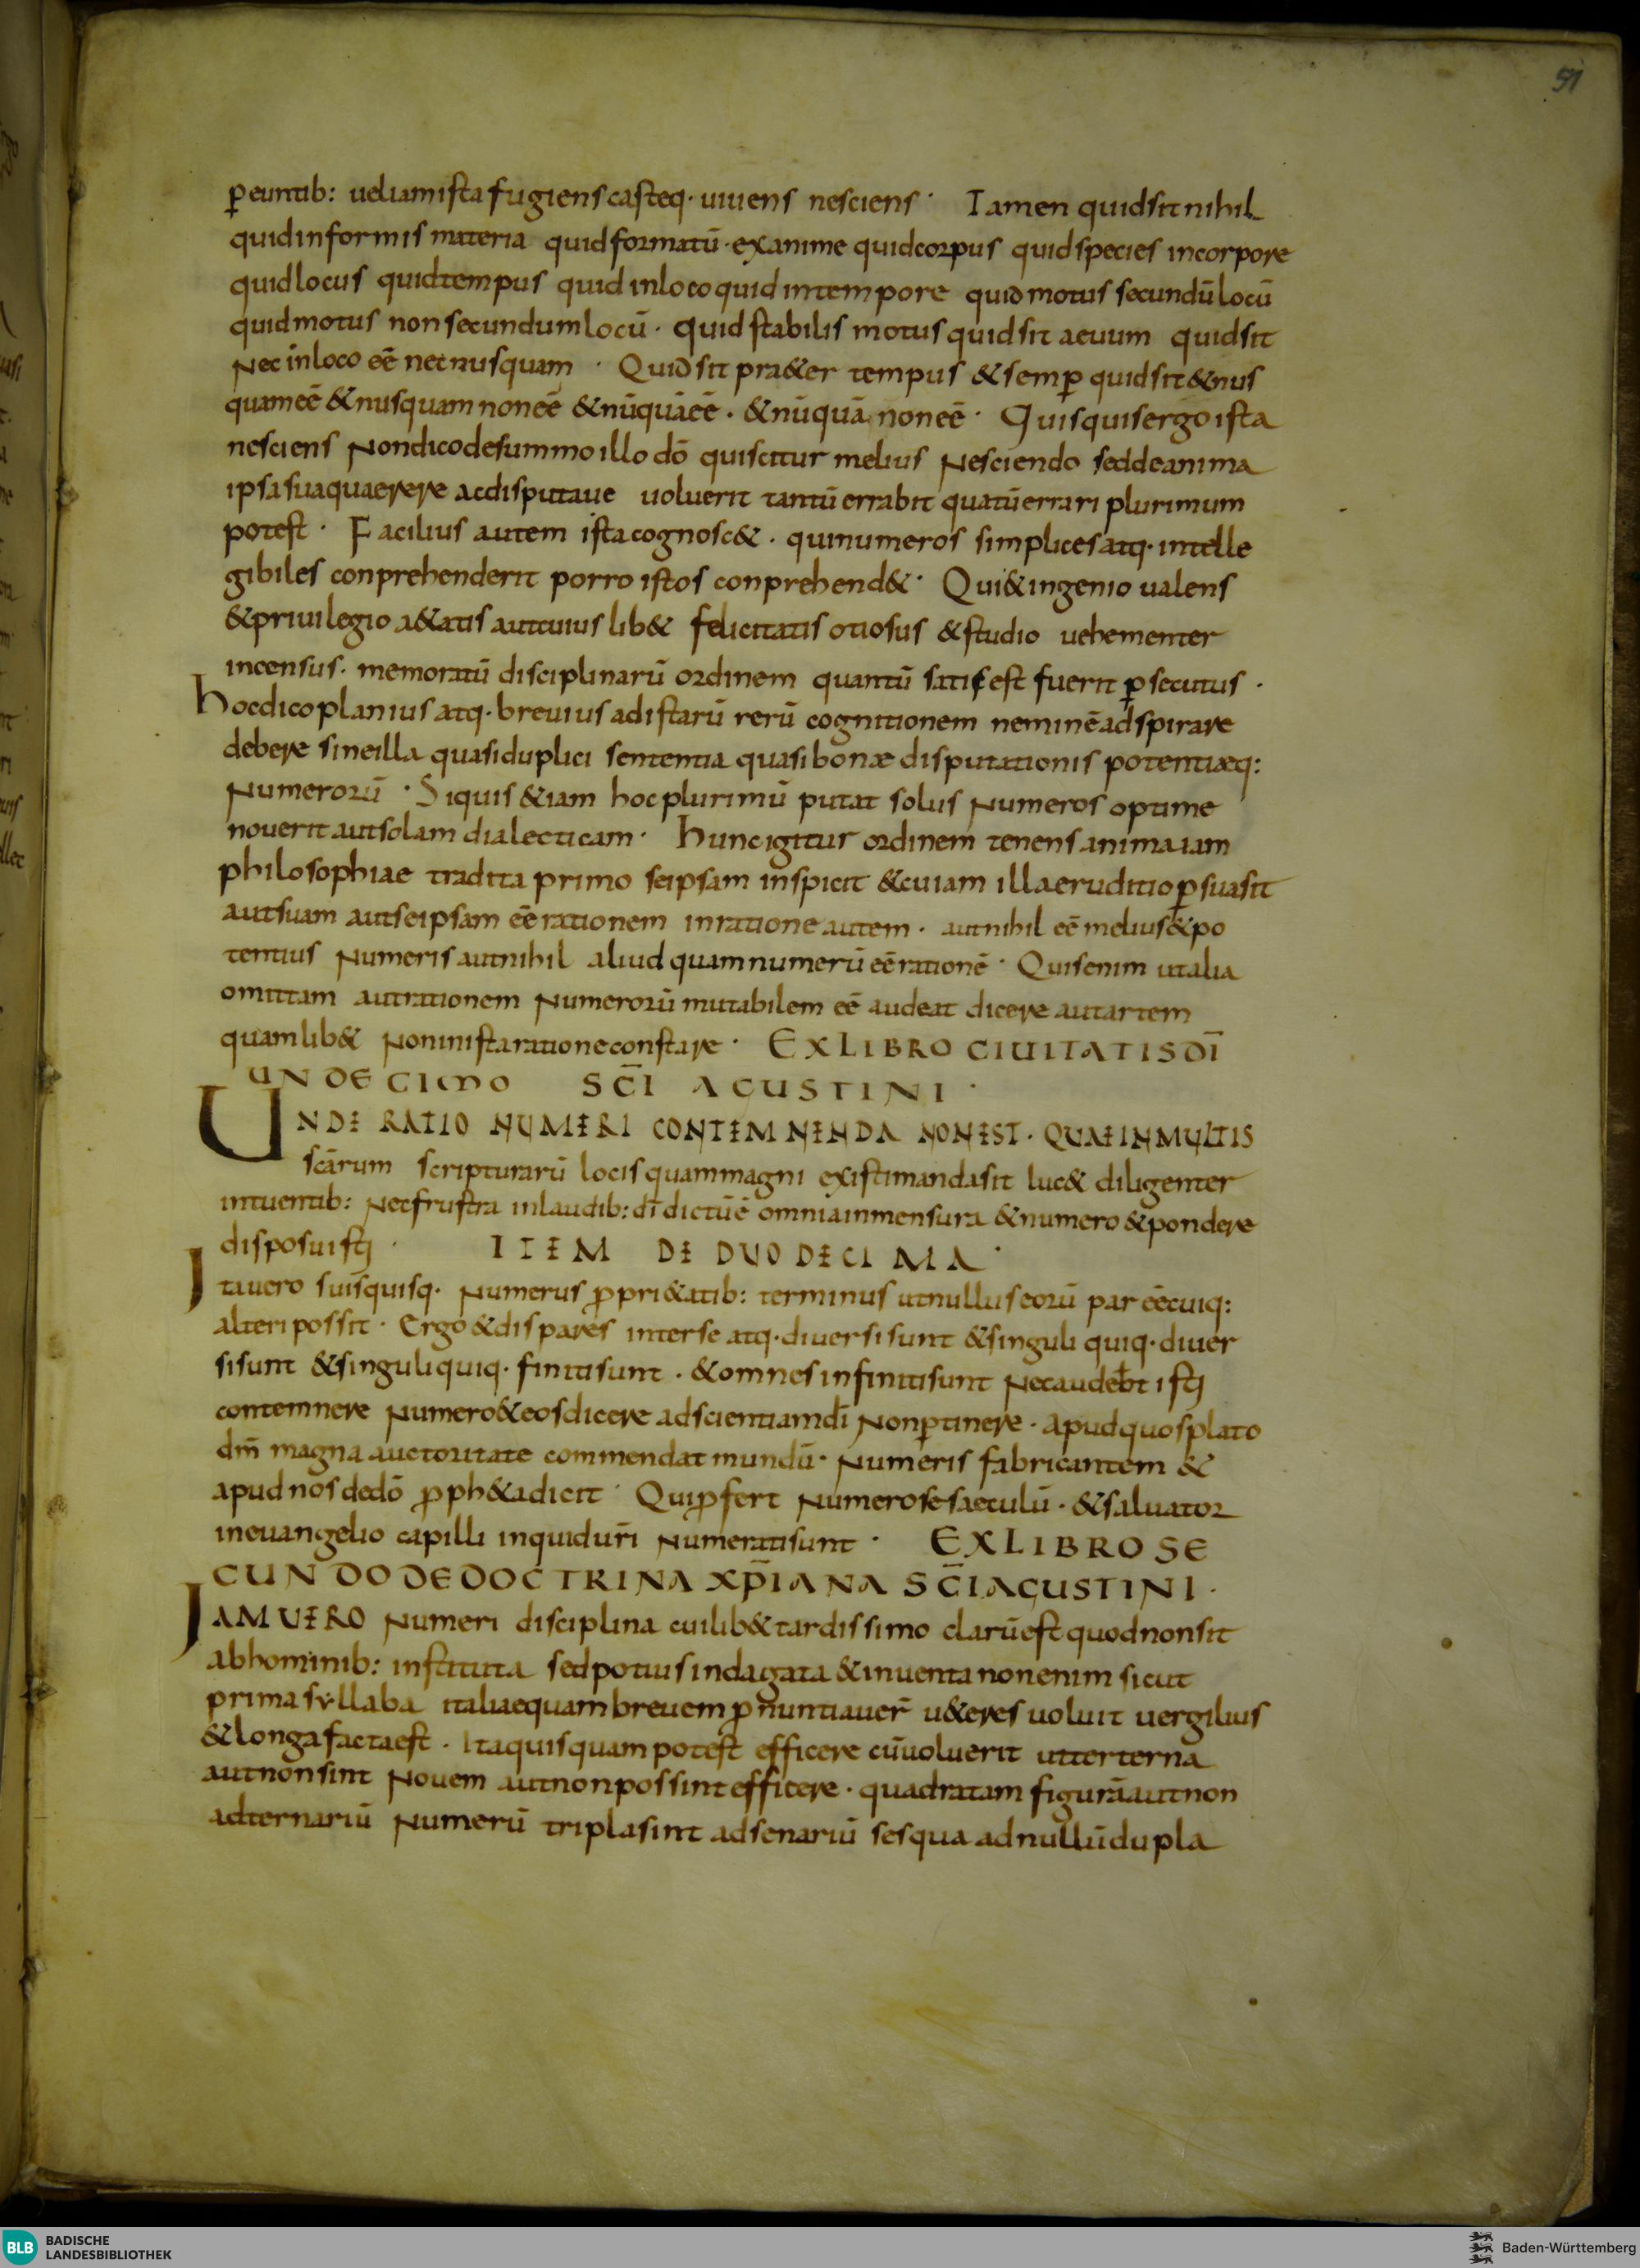 51
p̲euntib: uel iam ista fugiens casteq· uiuens nesciens · Tamen quid sit nihil
quid informis materia quid formatū · exanime quid corpus quid species in corpore
quid locus quid tempus quid in loco quid in tempore quid motus secundū locū
quid motus non secundum locū · quid stabilis motus quid sit aeuum quid sit
Nec in loco eē nec nusquam · Quid sit pra&er tempus & semp̲ quid sit & nus
quam eē & nusquam non eē & nūquā eē · & nūquā non eē · Quisquis ergo ista
nesciens Non dico de summo illo dō qui scitur melius Nesciendo sed de anima
ipsa sua quaerere ac disputare uoluerit tantū errabit quatū errari plurimum
potest · Facilius autem ista cognosc& · qui numeros simplices atq· intelle
gibiles conprehenderit porro istos conprehend& · Qui & ingenio ualens
& priuilegio a&atis aut cuius lib& felicitatis otiosus & studio uehementer
incensus · memoratū disciplinarū ordinem quantū satis est fuerit p̲secutus ·
hoc dico planius atq· breuius ad istarū rerū cognitionem neminē adspirare
debere sine illa quasi duplici sententia quasi bonæ disputationis potentiæq:
Numerorū · Siquis &iam hoc plurimū putat solus Numeros optime
nouerit aut solam dialecticam · hunc igitur ordinem tenens anima iam
philosophiae tradita primo seipsam inspicit & cui iam illa eruditio p̲suasit
aut suam aut seipsam eē rationem in ratione autem · aut nihil eē melius & po
tentius Numeris aut nihil aliud quam numerū eē rationē · Quis enim ut alia
omittam aut rationem Numerorū mutabilem eē audeat dicere aut artem
quamlib& Non in ista ratione constare · EX LIBRO CIUITATIS DĪ
UNDECIMO SC̄I AGUSTINI ·
UNDE RATIO NUMERI CONTEMNENDA NON EST · QUAE IN MULTIS
scārum scripturarū locis quam magni existimanda sit luc& diligenter
intuentib: Nec frustra in laudib: dī dictū ē omnia in mensura & numero & pondere
disposuisti · ITEM DE DUODECIMA ·
Ita uero suis quisq· Numerus p̲pri&atib: terminus ut nullus eorū par eē cuiq:
alteri possit · Ergo & dispares inter se atq· diuersi sunt & singuli quiq· diuer
si sunt & singuli quiq· finiti sunt · & omnes infiniti sunt Nec audebt isti
contemnere Numero & eos dicere ad scientiam dī Non p̲tinere · apud quos plato
dm̄ magna auctoritate commendat mundū · Numeris fabricantem &
apud nos de dō p̲ph&a dicit · Qui p̲fert Numerose saeculū · & saluator
in euangelio capilli inquid ur̄i Numerati sunt · EX LIBRO SE
CUNDO DE DOCTRINA XP̄IANA SC̄I AGUSTINI ·
IAM UERO Numeri disciplina cuilib& tardissimo clarū est quod non sit
ab hominib: instituta sed potius indagata & inuenta non enim sicut
prima syllaba italiae quam breuem p̲nuntiauer̄ u&eres uoluit uergilius
& longa facta est · Ita quisquam potest efficere cū uoluerit ut ter terna
aut non sint Nouem aut non possint efficere · quadratam figurā aut non
ad ternariū Numerū tripla sint ad senariū sesqua ad nullū dupla
BLB BADISCHE
LANDESBIBLIOTHEK
Baden-Württemberg